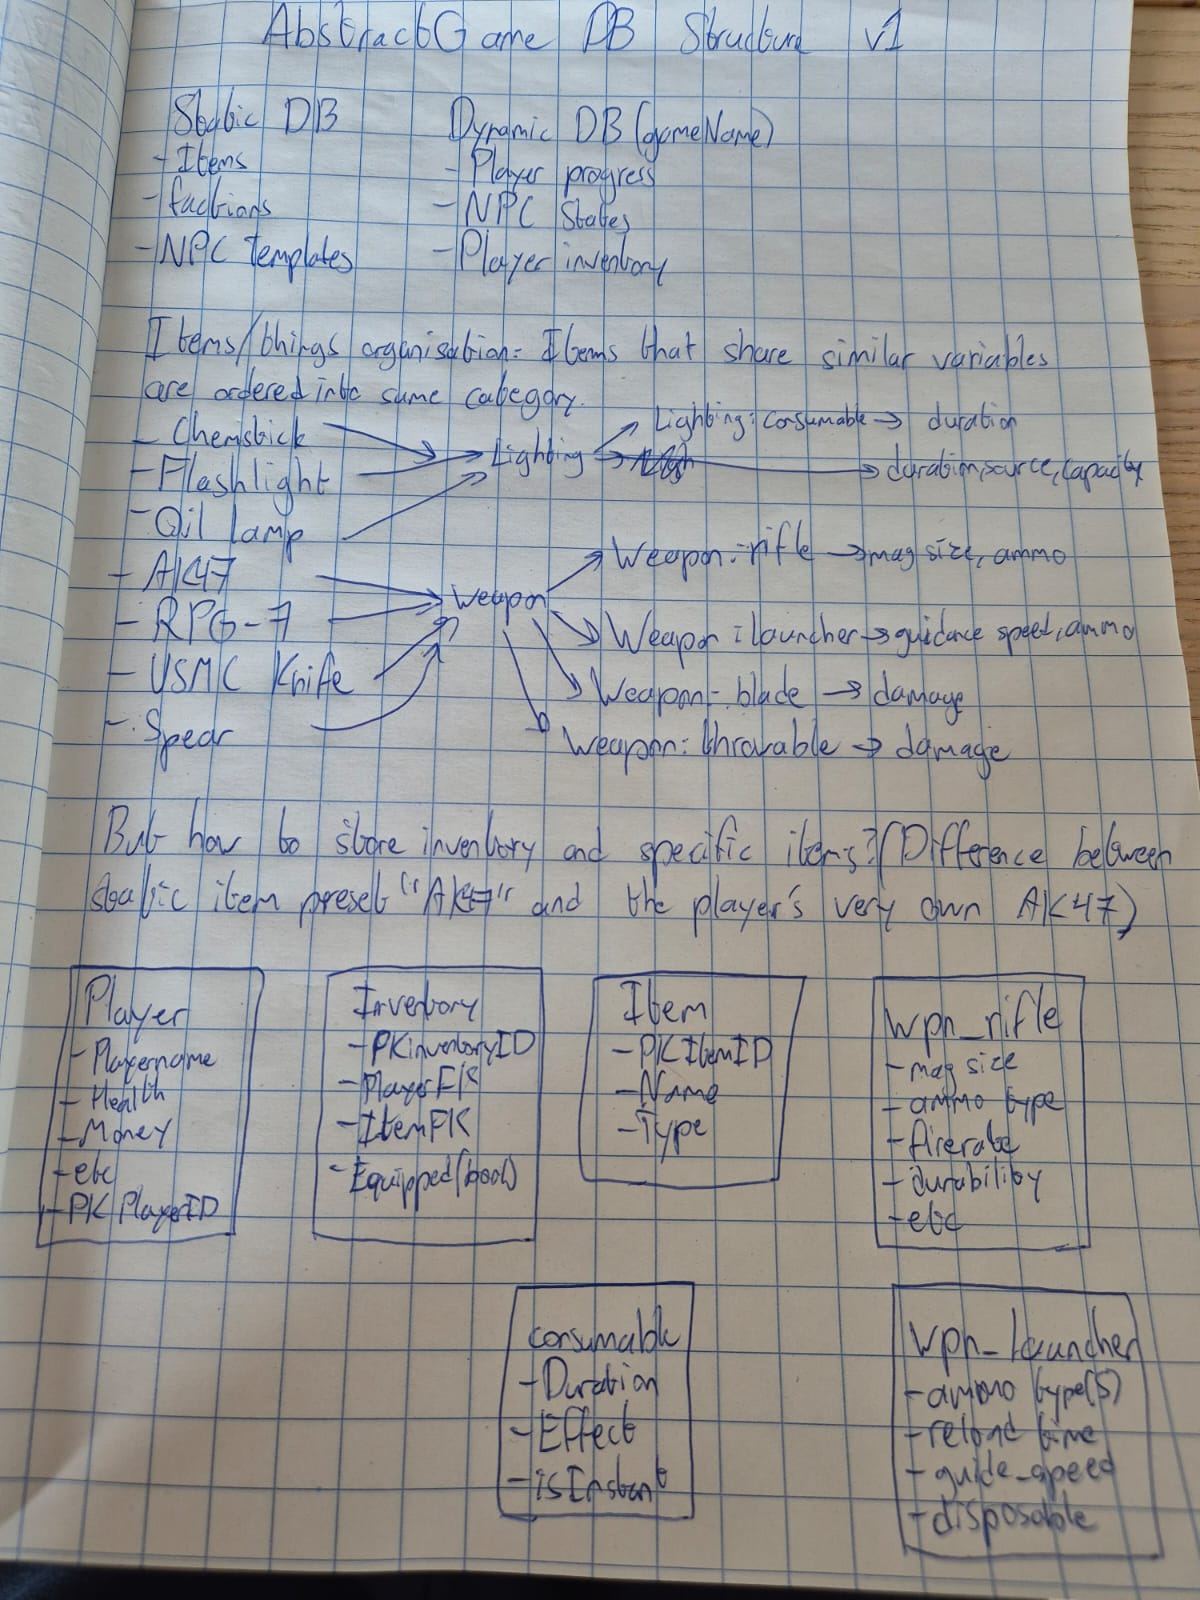 AbstractGame DB Structure v1
Static DB
- Items
- factions
- NPC templates
Dynamic DB (gameName)
- Player progress
- NPC States
- Player inventory
Items/things organisation: Items that share similar variables
are ordered into same category.
- Chemstick
- Flashlight
- Oil lamp
- AK47
- RPG-7
- USMC Knife
- Spear
Lighting
Lighting: consumable → duration
→ duration, source, capacity
Weapon
Weapon: rifle → mag size, ammo
Weapon: launcher → guidance speed, ammo
Weapon: blade → damage
Weapon: throwable → damage
But how to store inventory and specific items? (Difference between
static item preset "AK47" and the player's very own AK47)
Player
- Playername
- Health
- Money
- etc
- PK PlayerID
Inventory
- PKinventoryID
- PlayerFK
- ItemFK
- Equipped(bool)
Item
- PK ItemID
- Name
- Type
wpn_rifle
- mag size
- ammo type
- firerate
- durability
- etc
consumable
- Duration
- Effect
- isInstant
wpn_launcher
- ammo type(s)
- reload time
- guide_speed
- disposable